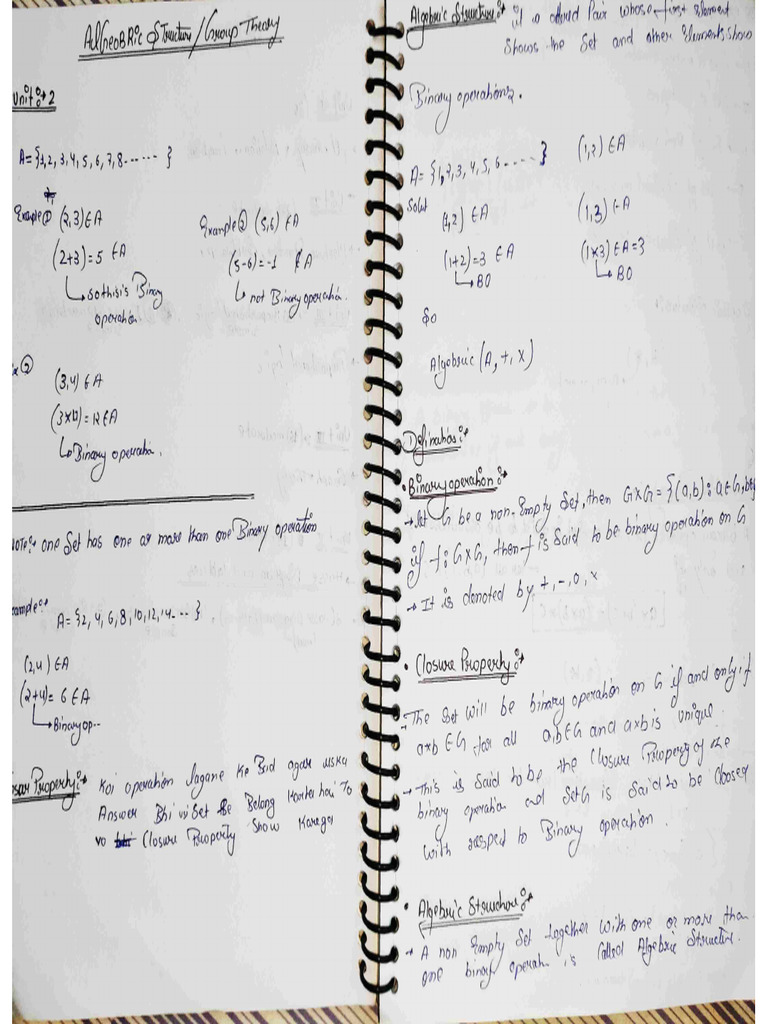 AlGeoBRic Structure/Group Theory
Unit:→ 2
A = {1, 2, 3, 4, 5, 6, 7, 8 ...... }
Example ① (2,3) ∈ A
(2+3) = 5 ∈ A
↳ so this is Binary
operation.
Example ② (5,6) ∈ A
(5-6) = -1 ∉ A
↳ not Binary operation.
(3,4) ∈ A
= 12 ∈ A
↳ Binary operation.
NOTE:→ one Set has one or more than one Binary operation
Example:→
A = {2, 4, 6, 8, 10, 12, 14 ... }
(2,4) ∈ A
(2+4) = 6 ∈ A
↳ Binary op--
Property:→ Koi operation lagane Ke Bad agar uska
Answer Bhi Set Se Belong Karta hai To
vo Closure Property Show Karega
Algebric Structure:→ it is Pair whose first Element
Shows the Set and other Elements show
Binary operations.
A = {1, 2, 3, 4, 5, 6 ..... } (1,2) ∈ A
(1,2) ∈ A (1,3) ∈ A
(1+2) = 3 ∈ A (1×3) ∈ A = 3
↳ BO ↳ BO
So
Algebric (A, +, ×)
Defination:→
• Binary operation:→
→ Let G be a non-Empty Set, then G×G = {(a,b) : a ∈ G,
if f : G×G, then f is Said to be binary operation on G
→ It is denoted by +, -, o, ×
• Closure Property:→
→ The Set will be binary operation on G if and only if
a×b ∈ G for all a,b ∈ G and a×b is unique.
→ This is said to be the Closure Property of the
binary operation and Set G is Said to be
with respect to Binary operation.
• Algebric Structure:→
→ A non Empty Set together with one or more than
one binary is Called Algebric Structure.